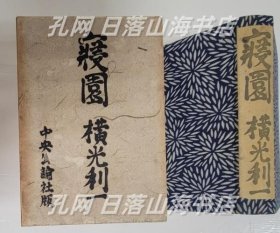 孔网 日落山海书店
寝園
横光利一
中央公論社版
寝園
横光利一
孔网 日落山海书店